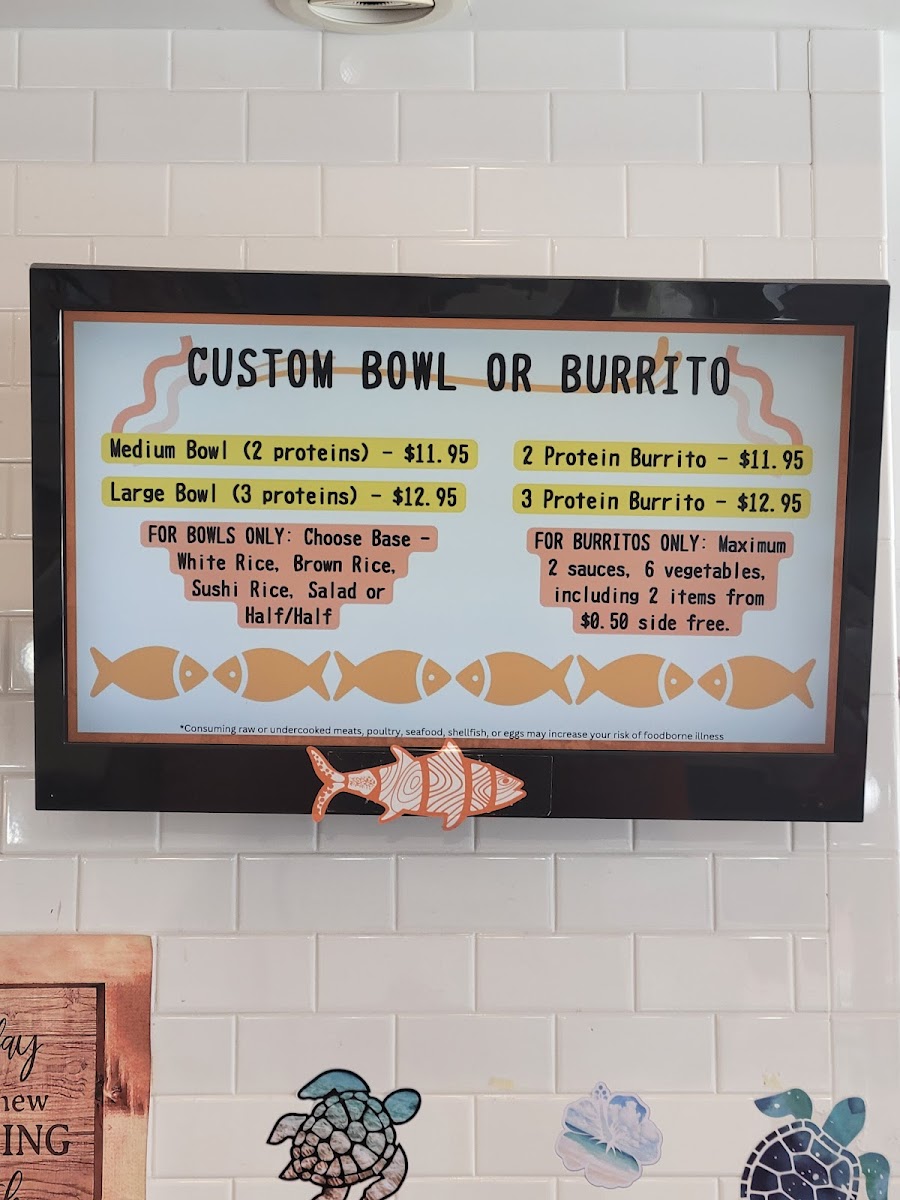 CUSTOM BOWL OR BURRITO
Medium Bowl (2 proteins) - $11.95
Large Bowl (3 proteins) - $12.95
FOR BOWLS ONLY: Choose Base -
White Rice, Brown Rice,
Sushi Rice, Salad or
Half/Half
2 Protein Burrito - $11.95
3 Protein Burrito - $12.95
FOR BURRITOS ONLY: Maximum
2 sauces, 6 vegetables,
including 2 items from
$0.50 side free.
*Consuming raw or undercooked meats, poultry, seafood, shellfish, or eggs may increase your risk of foodborne illness
ay
new
ING